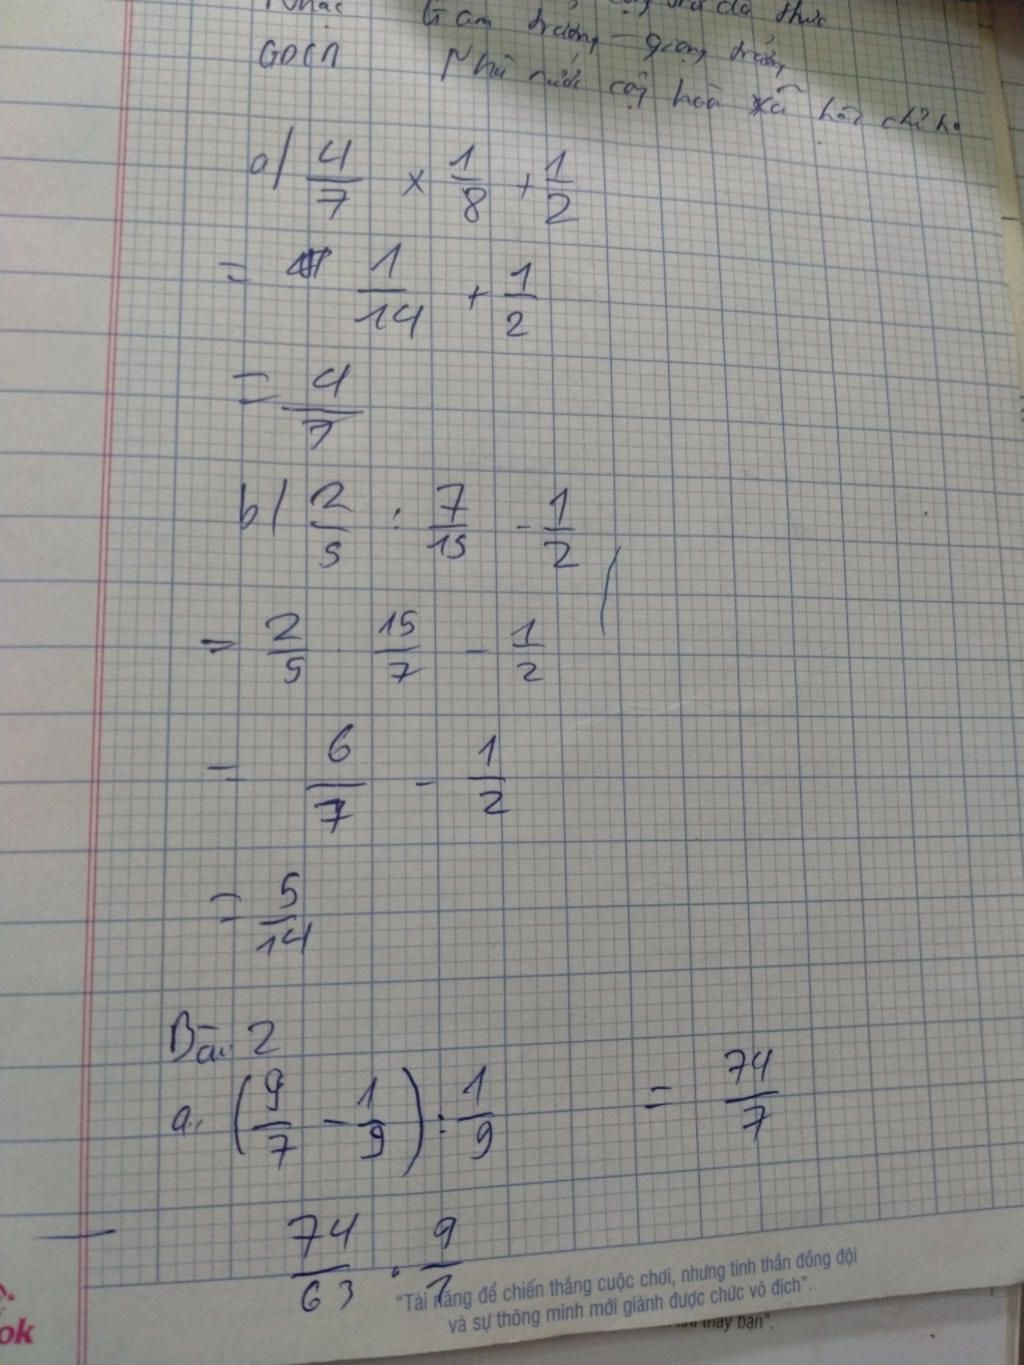 Nhạc
GDCD Nhà nước cộng hoà xã hội chủ
a) 4/7 × 1/8 + 1/2
= 1/14 + 1/2
= 4/7
b) 2/5 : 7/15 - 1/2
= 2/5 . 15/7 - 1/2
= 6/7 - 1/2
= 5/14
Bài 2
a. (9/7 - 1/9) : 1/9 = 74/7
74/63 . 9/1
"Tài năng để chiến thắng cuộc chơi, nhưng tinh thần đồng đội
và sự thông minh mới giành được chức vô địch".
thay bạn".
ok